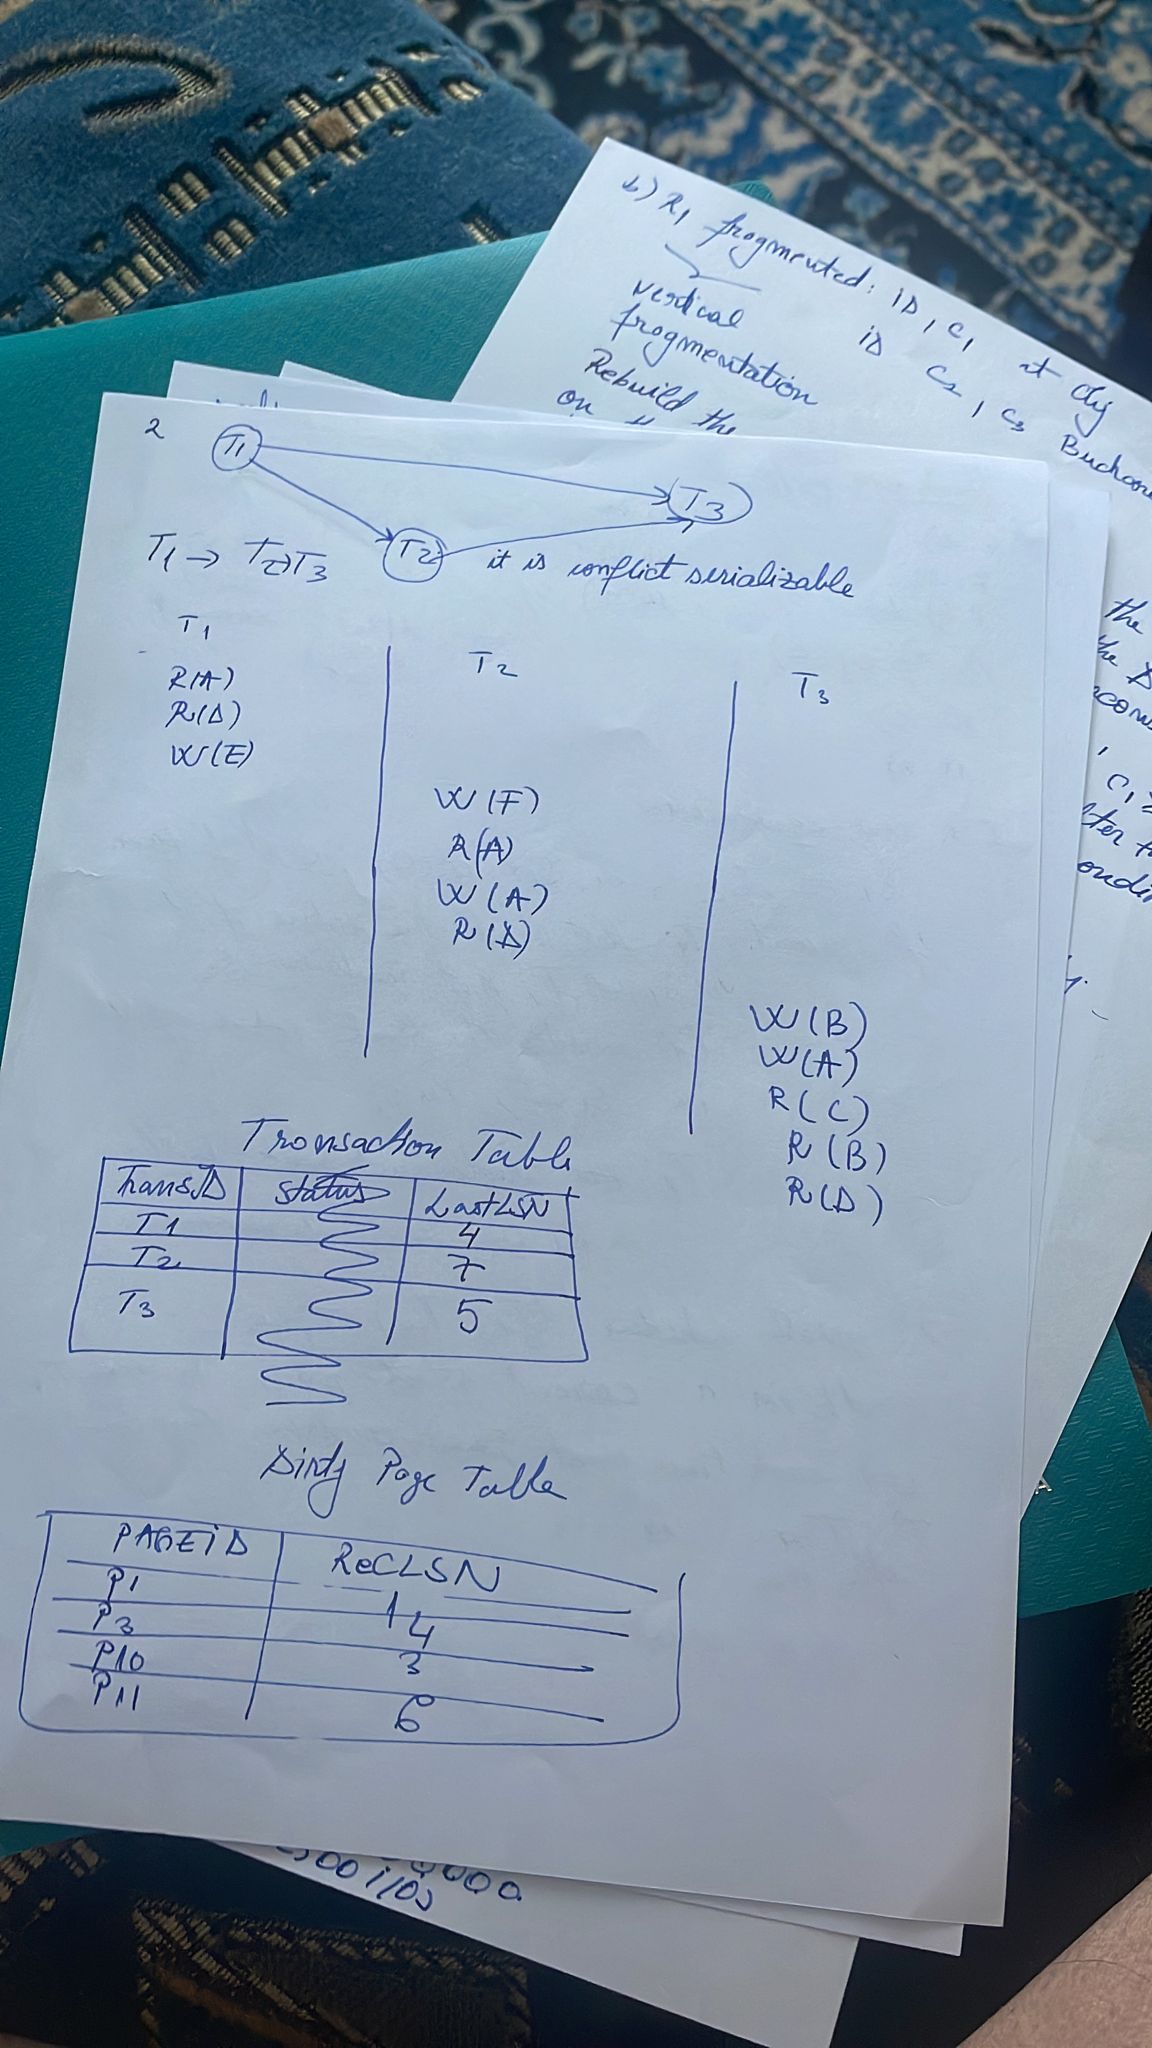 b) R1 fragmented: iD, C1 at Cluj
iD C2, C3
vertical
fragmentation
Rebuild the
on
2
T1
T3
T2
T1 → T2→T3
it is conflict serializable
T1
R(A)
R(D)
W(E)
T2
W(F)
R(A)
W(A)
R(D)
T3
W(B)
W(A)
R(C)
R(B)
R(D)
Transaction Table
TransID Status LastLSN
T1 4
T2 7
T3 5
Dirty Page Table
PAGEiD RecLSN
P1 1
P3 4
P10 3
P11 6
the
the
C1
500 i/os